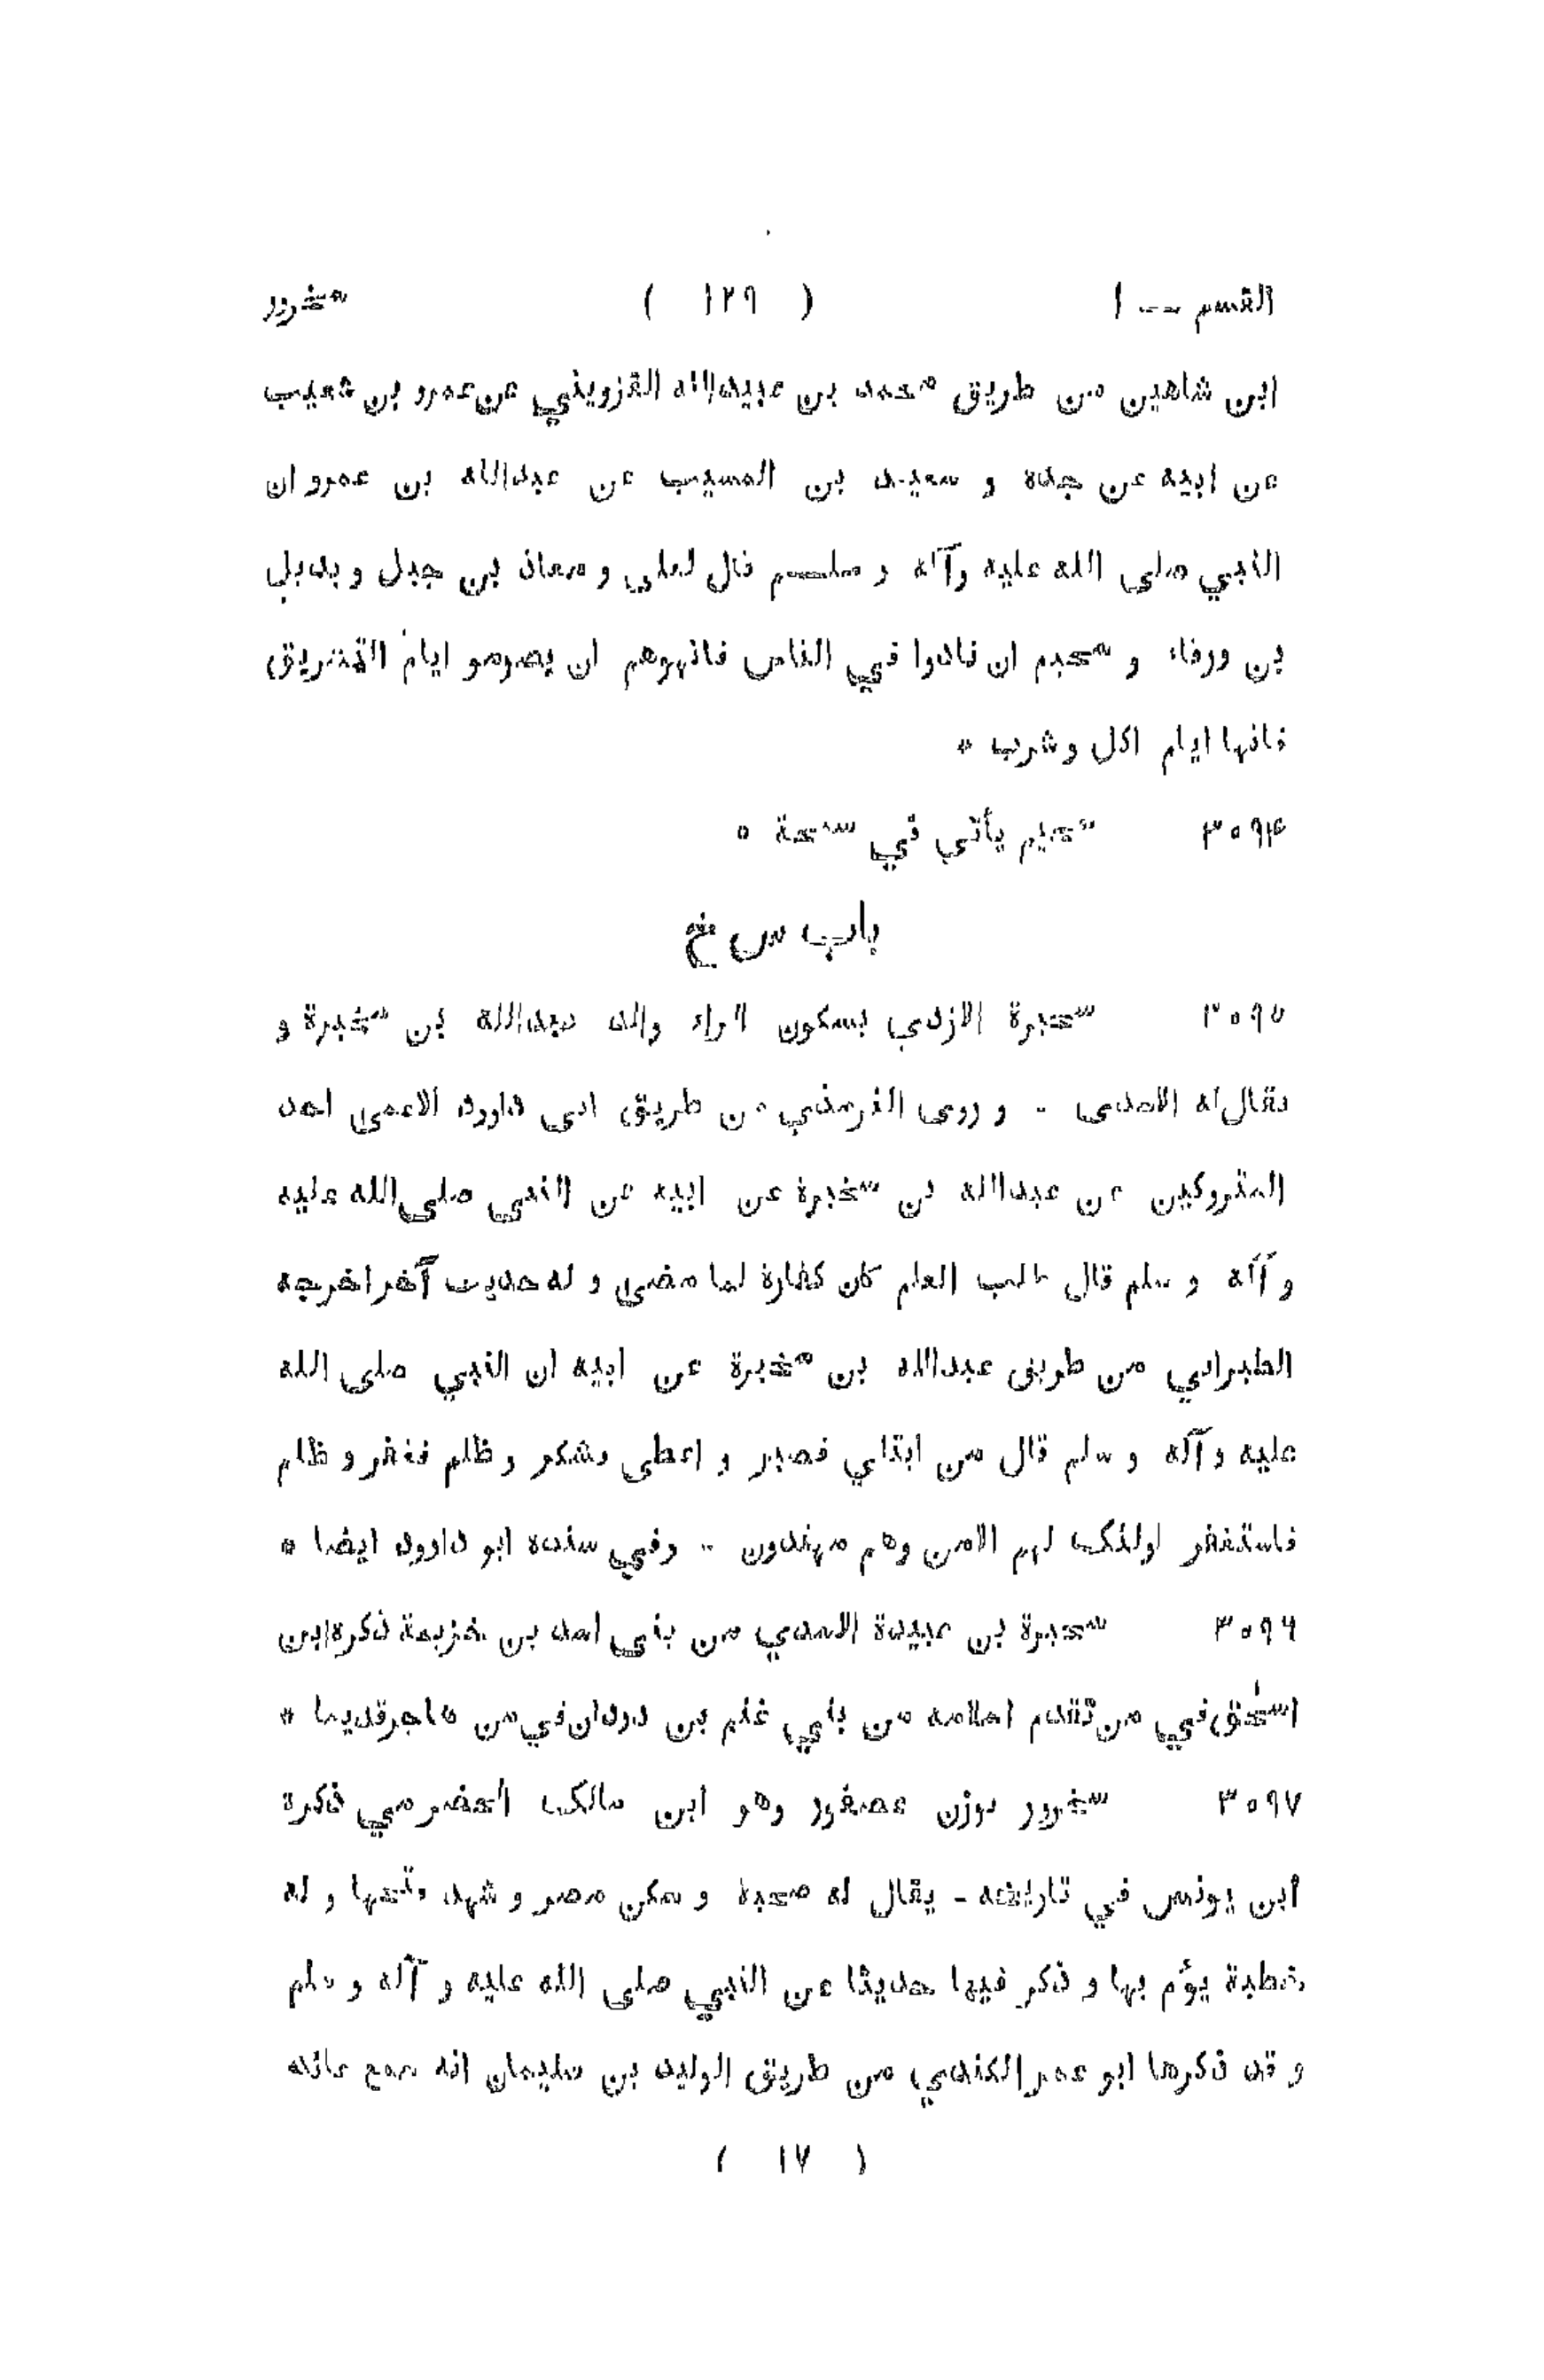 القسم -- ١ ( ١٢٩ ) سخرور
ابن شاهين من طريق محمد بن عبيدالله القزويني عن عمرو بن شعيب
عن ابيه عن جده و سعيد بن المسيب عن عبدالله بن عمرو ان
النبي صلى الله عليه وآله و سلم قال لعلي و معاذ بن جبل و بديل
بن ورقاء و سحيم ان نادوا في الناس فانهوهم ان يصوموا ايام التشريق
فانها ايام اكل و شرب *
٣٠٩٤ سحيم يأتي في سمحة *
باب س خ
٣٠٩٥ سخبرة الازدي بسكون الزاء والد عبدالله بن سخبرة و
يقال له الاسدي - و روى الترمذي من طريق ابي داوود الاعمى احد
المتروكين عن عبدالله بن سخبرة عن ابيه عن النبي صلى الله عليه
و آله و سلم قال من طلب العلم كان كفارة لما مضى و له حديث آخر اخرجه
الطبراني من طريق عبدالله بن سخبرة عن ابيه ان النبي صلى الله
عليه و آله و سلم قال من ابتلي فصبر و اعطى فشكر و ظلم فغفر و ظلم
فاستغفر اولئك لهم الامن وهم مهتدون - وفي سنده ابو داوود ايضا *
٣٠٩٦ سخبرة بن عبيدة الاسدي من بني اسد بن خزيمة ذكره ابن
اسحٰق في من تقدم اسلامه من بني غنم بن دودان في من هاجر قديما *
٣٠٩٧ سخرور بوزن عصفور وهو ابن مالك الحضرمي ذكره
ابن يونس في تاريخه - يقال له صحبة و سكن مصر و شهد فتحها و له
خطبة يؤم بها و ذكر فيها حديثا عن النبي صلى الله عليه و آله و سلم
و قد ذكرها ابو عمر الكندي من طريق الوليد بن سليمان انه سمع عائذ
( ١٧ )